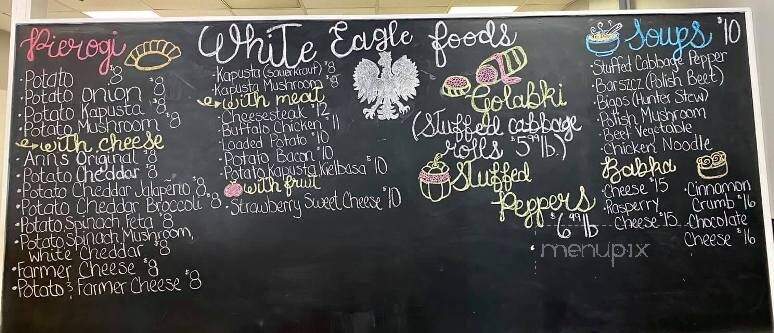 White Eagle foods
Pierogi
·Potato $8
·Potato onion $8
·Potato Kapusta $8
·Potato Mushroom $8
with cheese
·Ann's Original $8
·Potato Cheddar $8
·Potato Cheddar Jalapeno $8
·Potato Cheddar Broccoli $8
·Potato Spinach Feta $8
·Potato Spinach Mushroom,
White Cheddar $8
·Farmer Cheese $8
·Potato & Farmer Cheese $8
·Kapusta (Sauerkraut) $8
·Kapusta Mushroom $8
with meat
·Cheesesteak $12
·Buffalo Chicken $11
·Loaded Potato $10
·Potato Bacon $10
·Potato Kapusta Kielbasa $10
with fruit
·Strawberry Sweet Cheese $10
Golabki
(Stuffed cabbage
rolls $5.99 lb.)
Stuffed
Peppers
$6.99 lb
Soups $10
·Stuffed Cabbage Pepper
·Barszcz (Polish Beet)
·Bigos (Hunter Stew)
·Polish Mushroom
·Beef Vegetable
·Chicken Noodle
Babka
·Cheese $15
·Rasperry
Cheese $15
·Cinnamon
Crumb $16
·Chocolate
Cheese $16
menupix